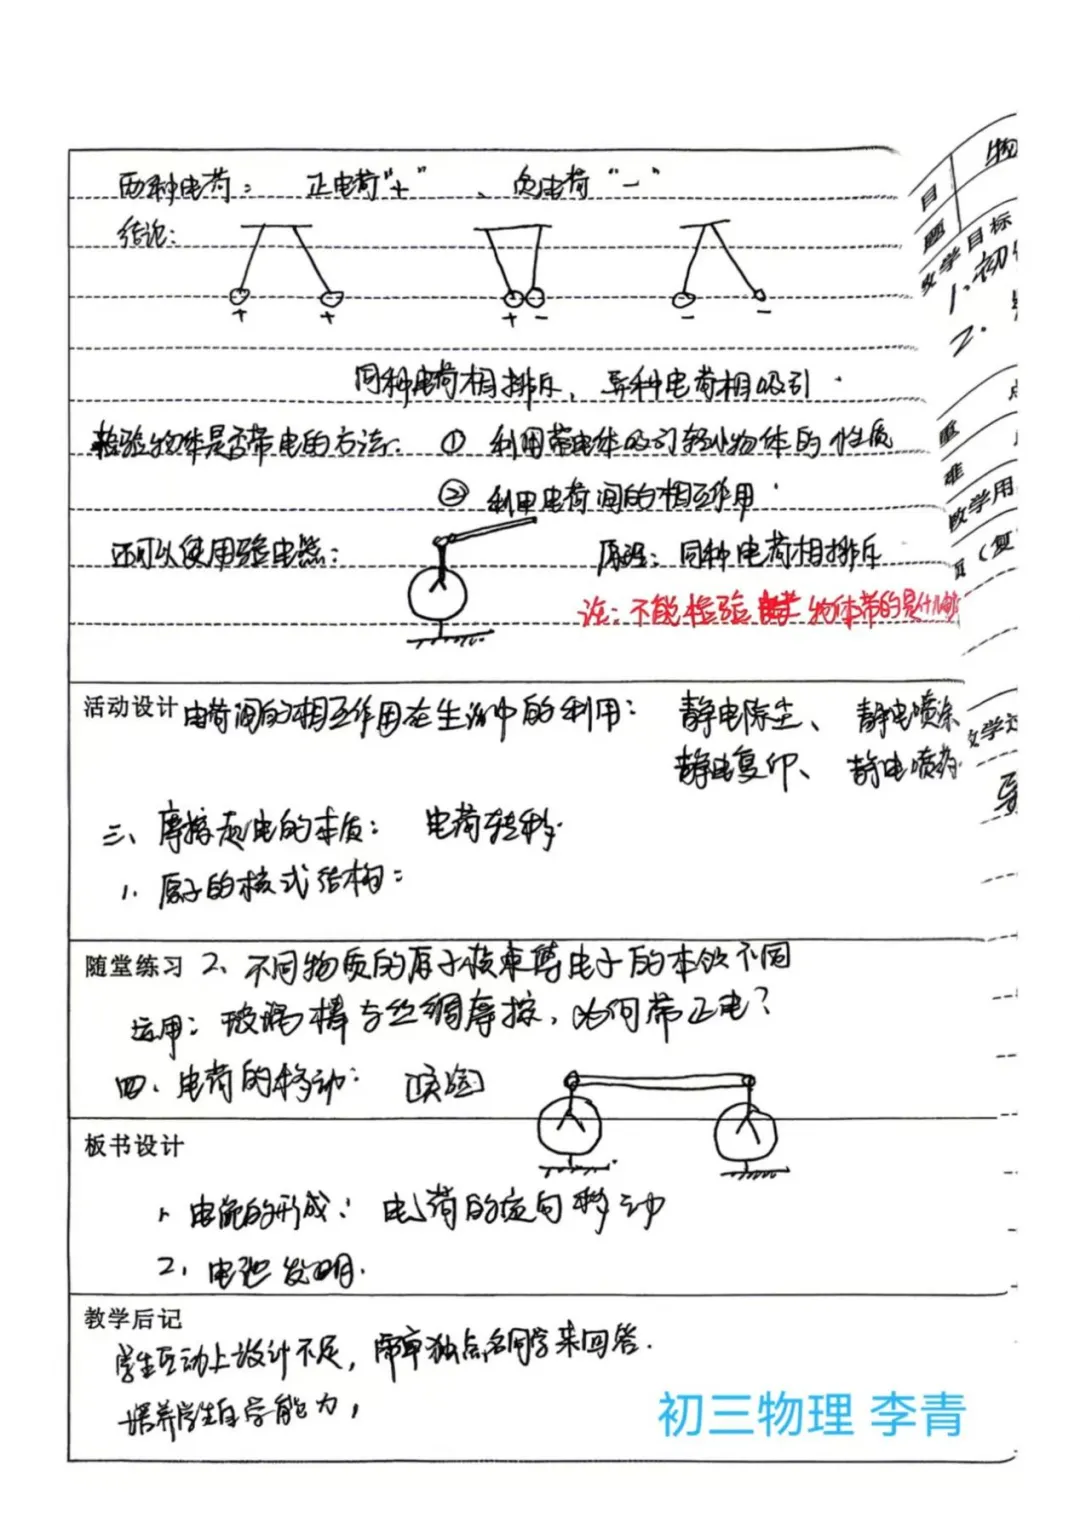 两种电荷: 正电荷"+"、负电荷"-"
结论:
+ + + - - -
同种电荷相排斥、异种电荷相吸引.
检验物体是否带电的方法: ① 利用带电体吸引轻小物体的性质
② 利用电荷间的相互作用.
还可以使用验电器: 原理: 同种电荷相排斥
注: 不能检验 物体带的是什么
活动设计 电荷间的相互作用在生活中的利用: 静电除尘、静电喷涂
静电复印、静电喷药
三、摩擦起电的本质: 电荷转移.
1. 原子的核式结构:
随堂练习 2、不同物质的原子核束缚电子的本领不同
运用: 玻璃棒与丝绸摩擦, 为何带正电?
四、电荷的移动:
板书设计
1. 电流的形成: 电荷的定向移动
2. 电池发明.
教学后记
学生互动上设计不足, 点名同学来回答.
培养学生自学能力,
初三物理 李青
物
目
题
教学目标
1.初
2.
点
重
难
教学用
(复
教学过
导